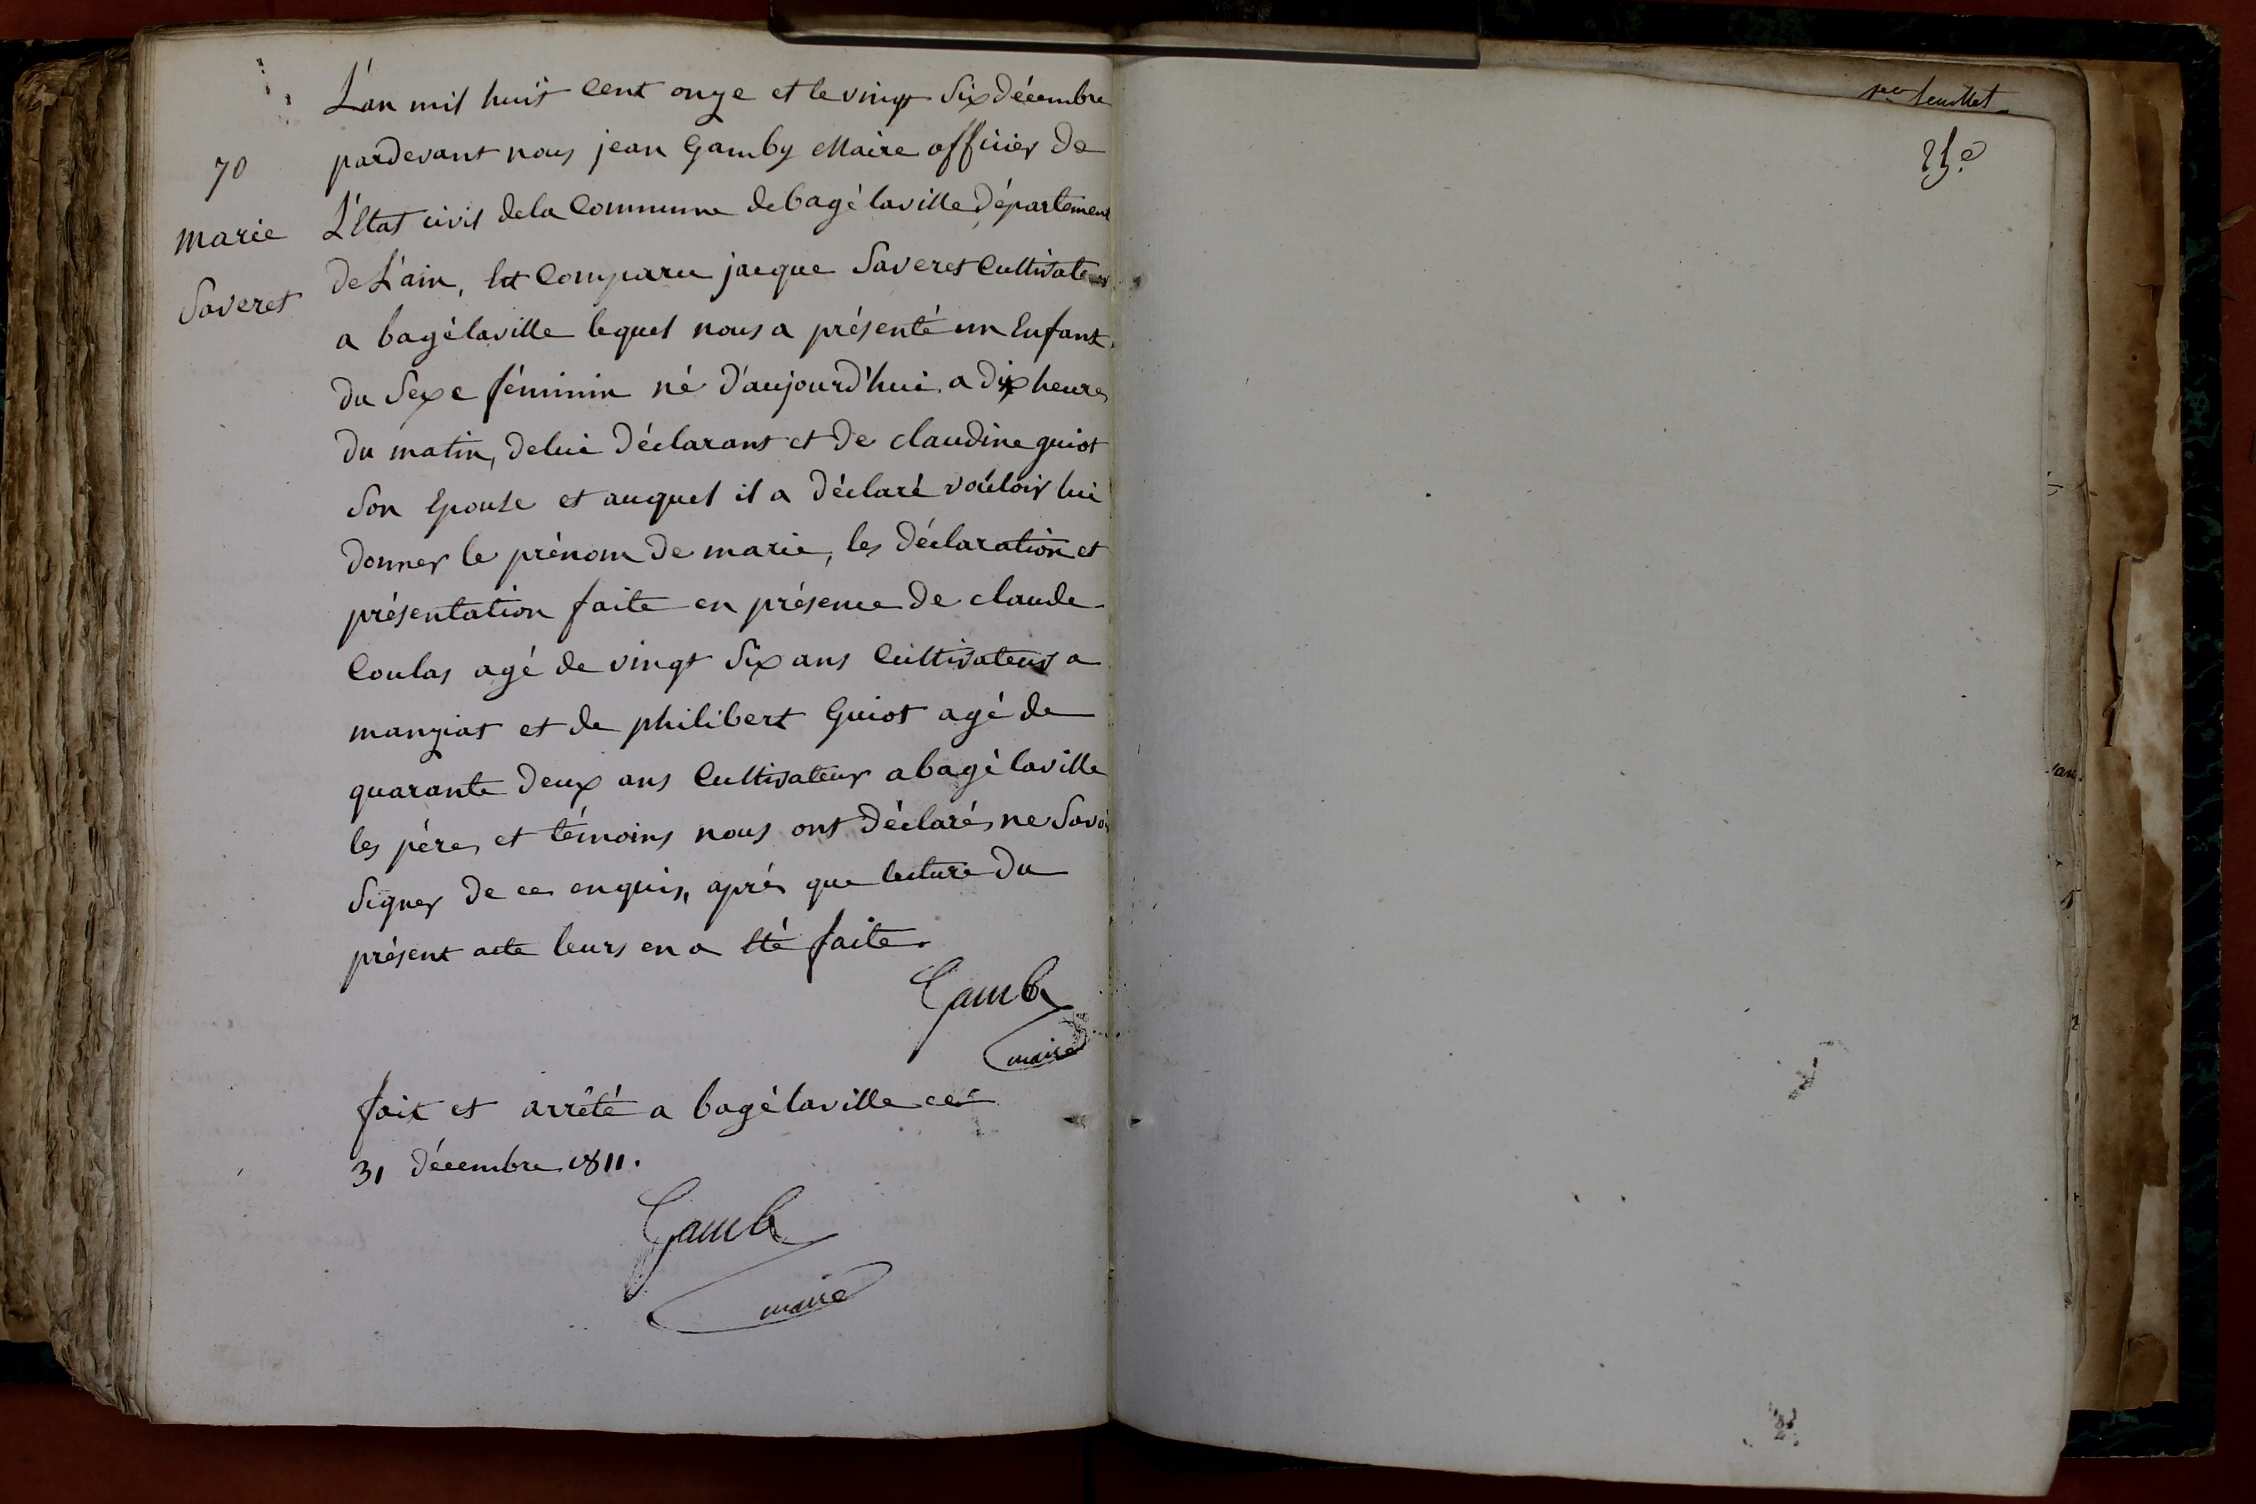 L'an mil huit cent onze et le vingt six décembre
pardevant nous jean Gamby Maire officier de
L'Etat civil de la Commune de bagé laville département
de L'ain, Est Comparu jacque Saveret Cultivateur
a bagé laville lequel nous a présenté un Enfant
du Sexe féminin né d'aujourd'hui a dix heures
du matin, de lui déclarant et de claudine guiot
Son Epouse et auquel il a déclaré vouloir lui
donner le prénom de marie, les déclaration et
présentation faite en présence de claude
Coulas agé de vingt Six ans Cultivateur a
manziat et de philibert Guiot agé de
quarante deux ans Cultivateur a bagé laville
les pére et témoins nous ont déclarés ne Savoir
Signer de ce enquis, aprés que lecture du
présent acte leurs en a Eté faite.
Gamby
maire
70
marie
Saveret
fait et arrêté a bagé laville ce
31 décembre 1811.
Gamby
maire
1er feuillet
25e